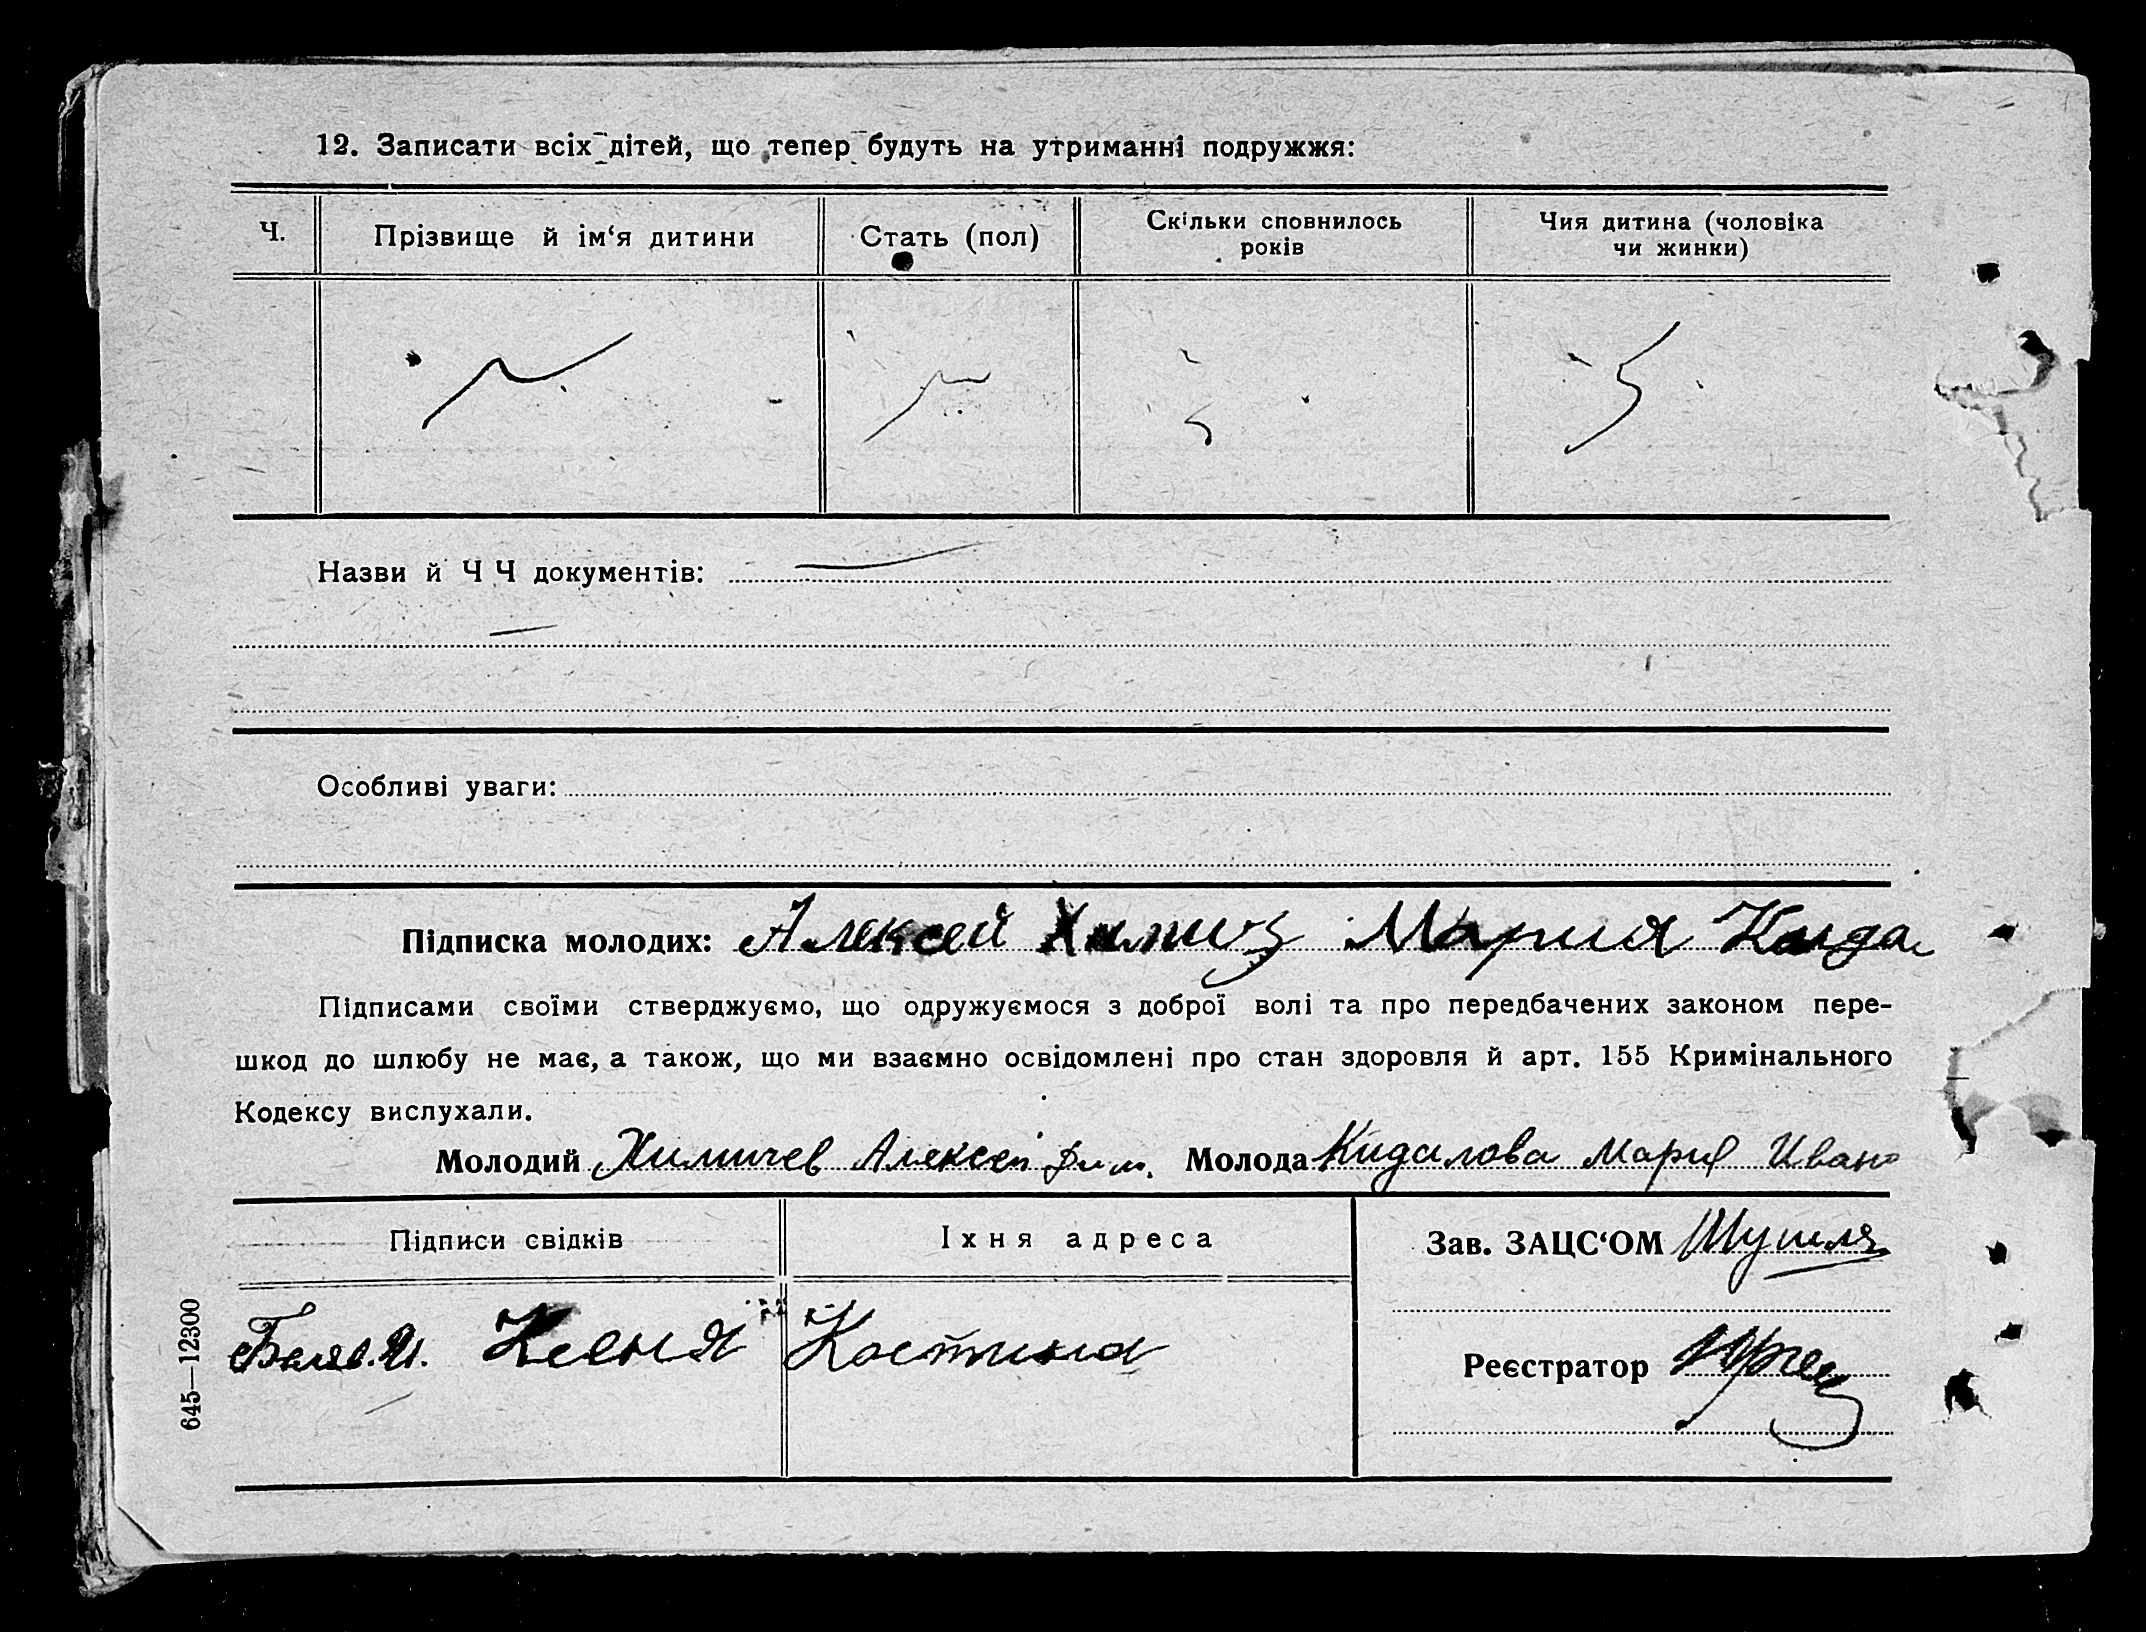 12. Записати всіх дітей, що тепер будуть на утриманні подружжя:
Ч. Прізвище й ім‘я дитини Стать (пол) Скільки сповнилось років Чия дитина (чоловіка чи жинки)
Назви й ЧЧ документів:
Особливі уваги:
Підписка молодих: Алексей Мария Кида
Підписами своїми стверджуємо, що одружуємося з доброї волі та про передбачених законом пере-
шкод до шлюбу не має, а також, що ми взаємно освідомлені про стан здоровля й арт. 155 Кримінального
Кодексу вислухали.
Молодий Химичев Алексей Молода Кидалова Мария Ивано
Підписи свідків Їхня адреса Зав. ЗАЦС‘ОМ
Ксеня Костина
Реєстратор
645—12300